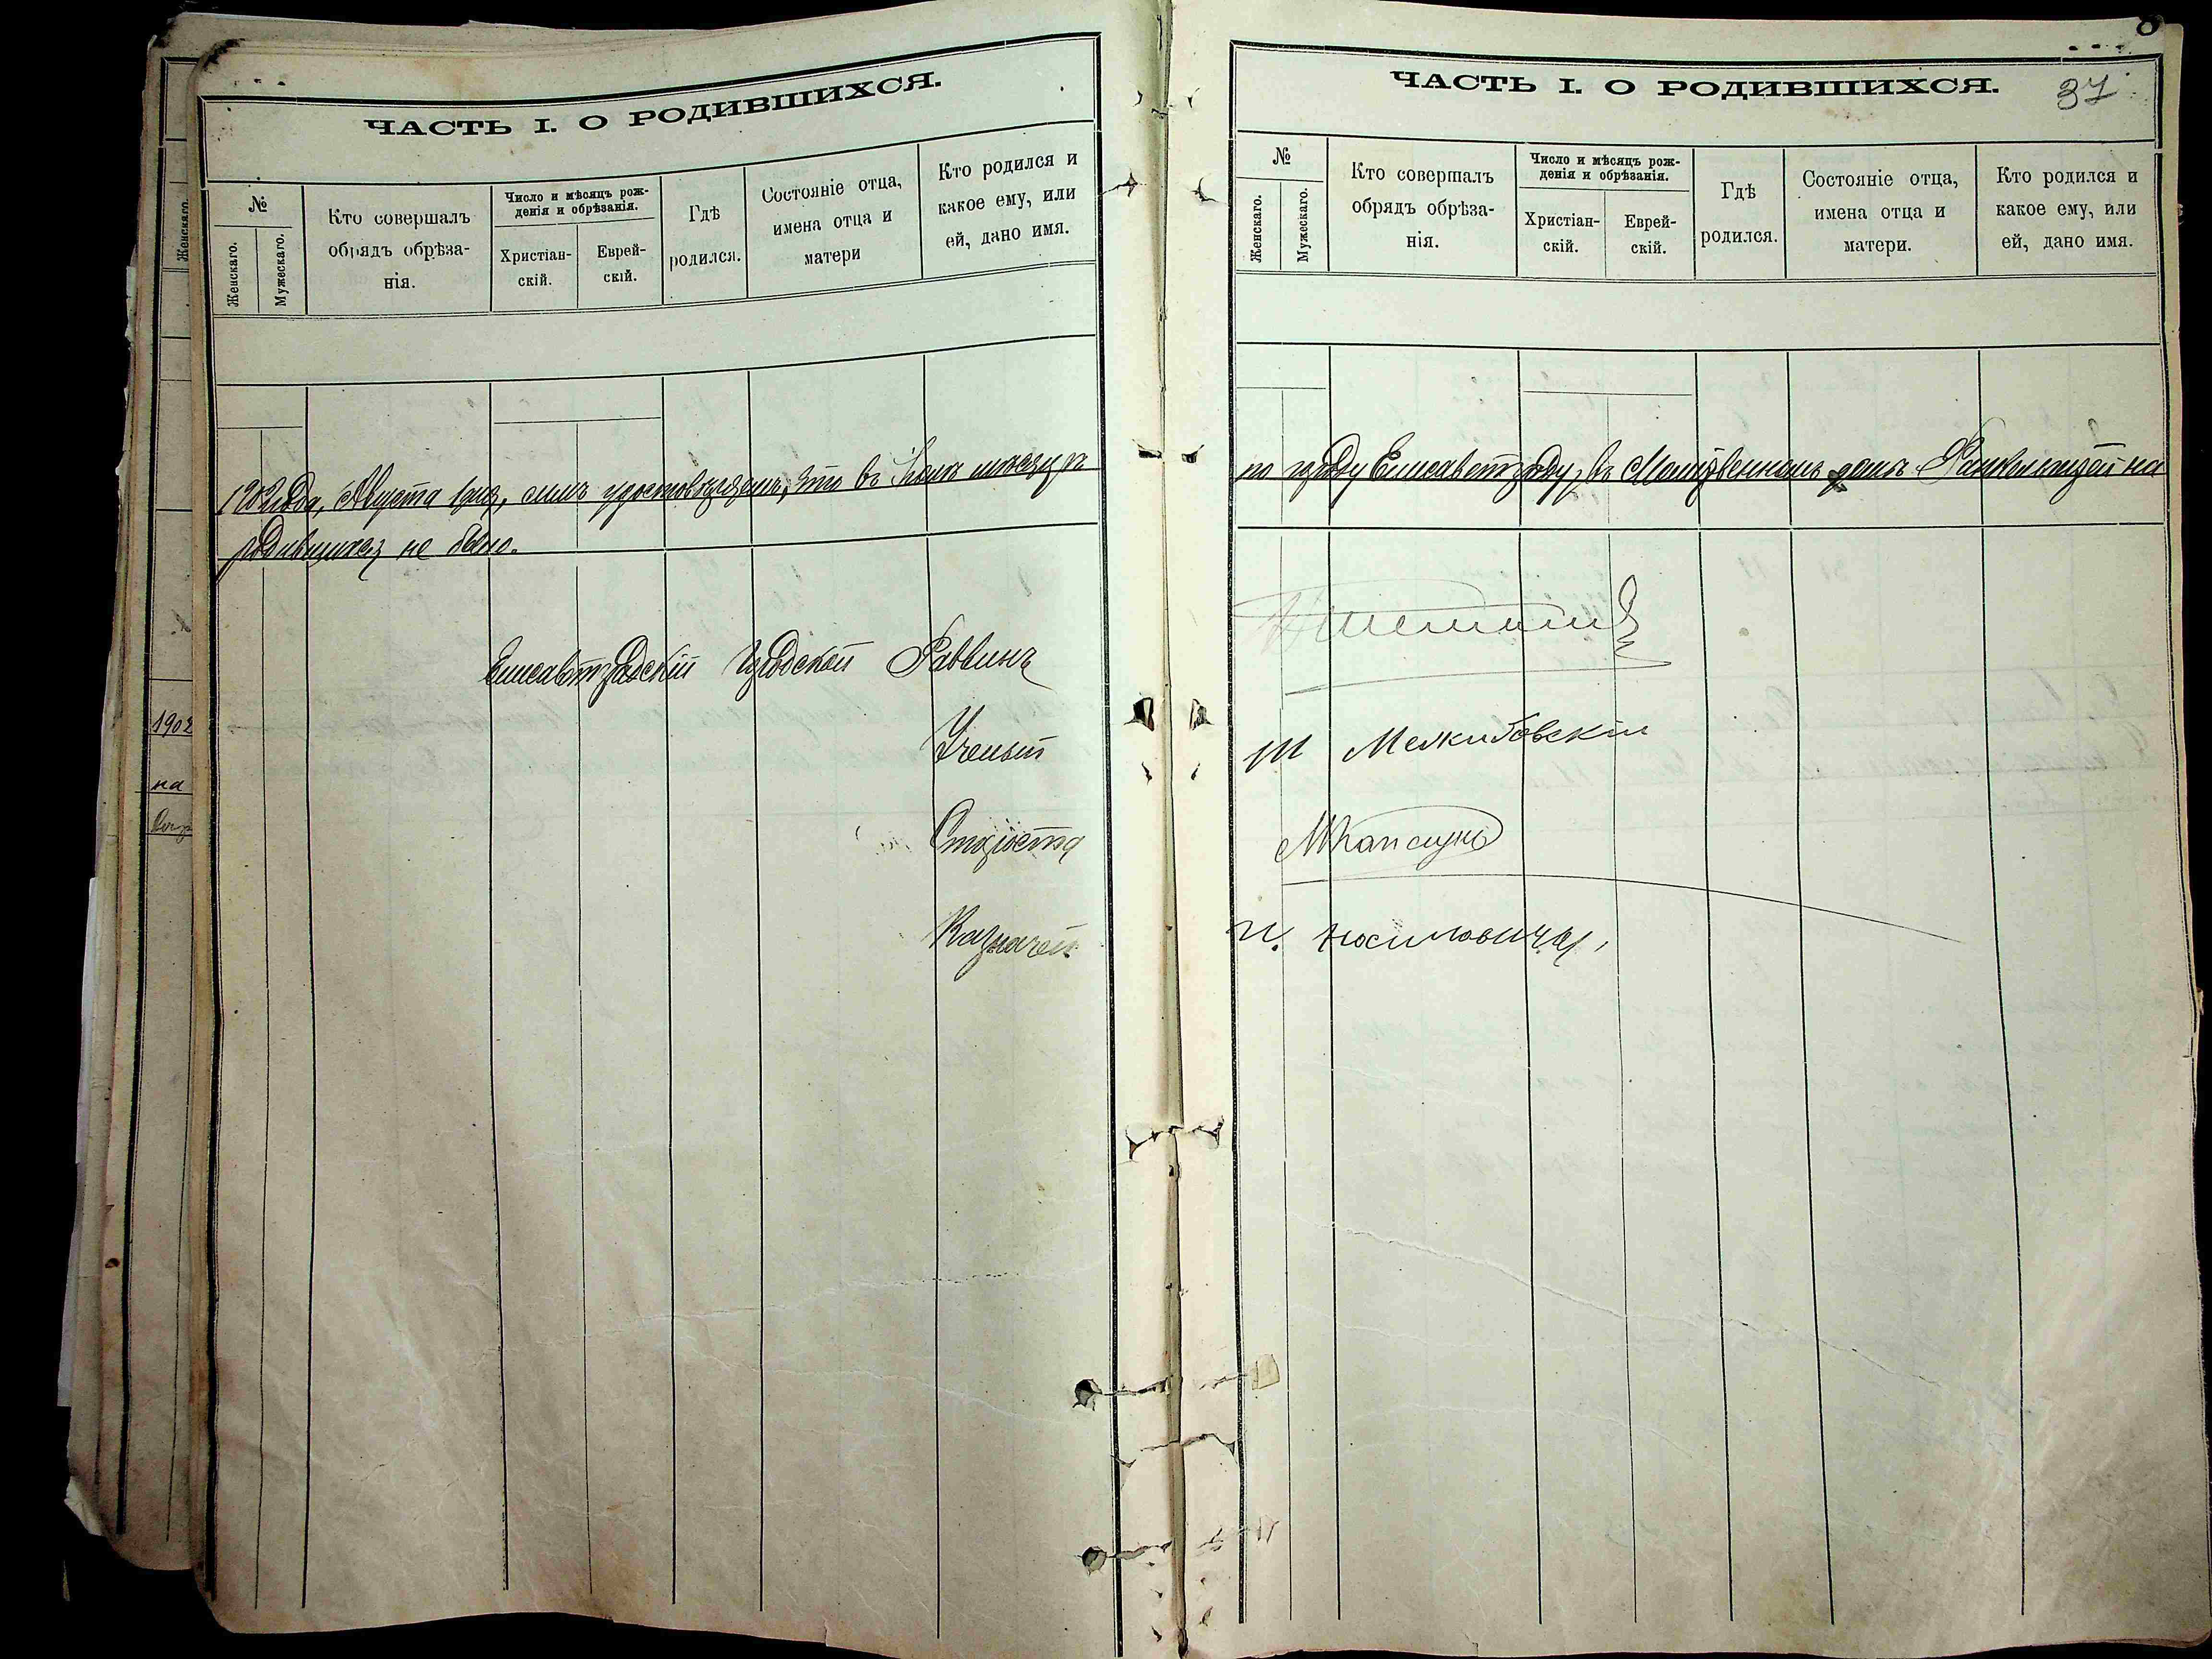 ЧАСТЬ I. О РОДИВШИХСЯ.
№
Женскаго.
Мужескаго.
Кто совершалъ
обрядъ обрѣза-
нія.
Число и мѣсяцъ рож-
денія и обрѣзанія.
Христіан-
скій.
Еврей-
скій.
Гдѣ
родился.
Состояніе отца,
имена отца и
матери
Кто родился и
какое ему, или
ей, дано имя.
1902 года, Августа 1 дня, симъ удостовѣряемъ, что въ Іюлѣ мѣсяцѣ
родившихся не было.
Елисаветградскій Городской Раввинъ
Ученый
Староста
Казначей
Женскаго.
1902
на
ЧАСТЬ I. О РОДИВШИХСЯ.
37
№
Женскаго.
Мужескаго.
Кто совершалъ
обрядъ обрѣза-
нія.
Число и мѣсяцъ рож-
денія и обрѣзанія.
Христіан-
скій.
Еврей-
скій.
Гдѣ
родился.
Состояніе отца,
имена отца и
матери.
Кто родился и
какое ему, или
ей, дано имя.
по городу Елисаветграду, въ Молитвенномъ домѣ